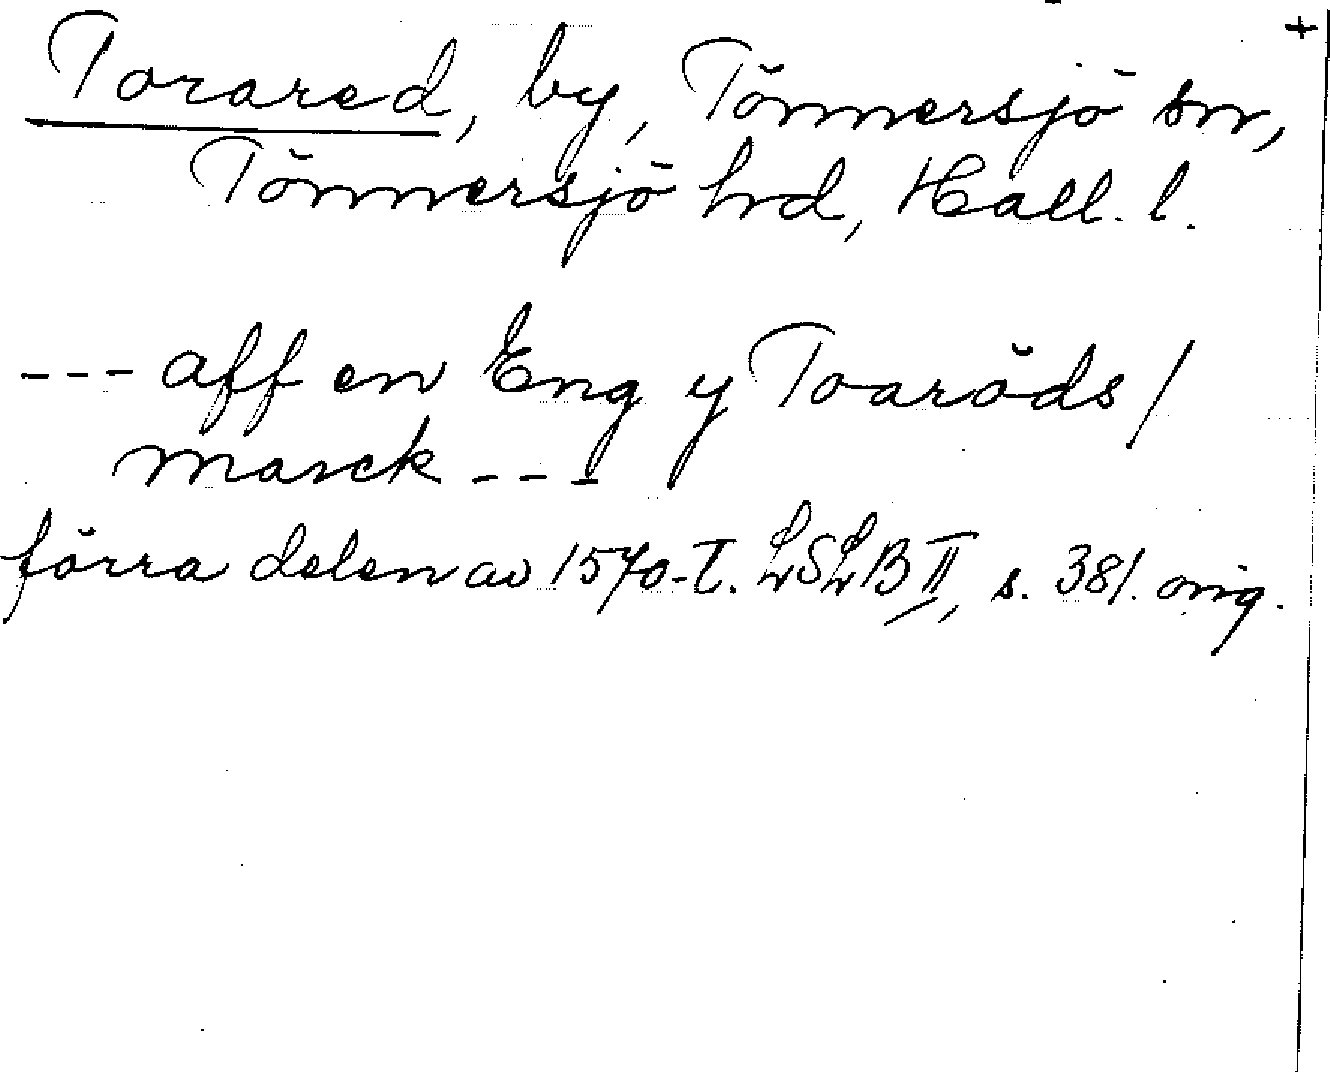 +
Torared, by, Tönnersjö sn,
Tönnersjö hd, Hall. l.
--- aff en Eng y Toaröds/
marck ---
förra delen av 1570-t. LSLB II, s. 381. orig.